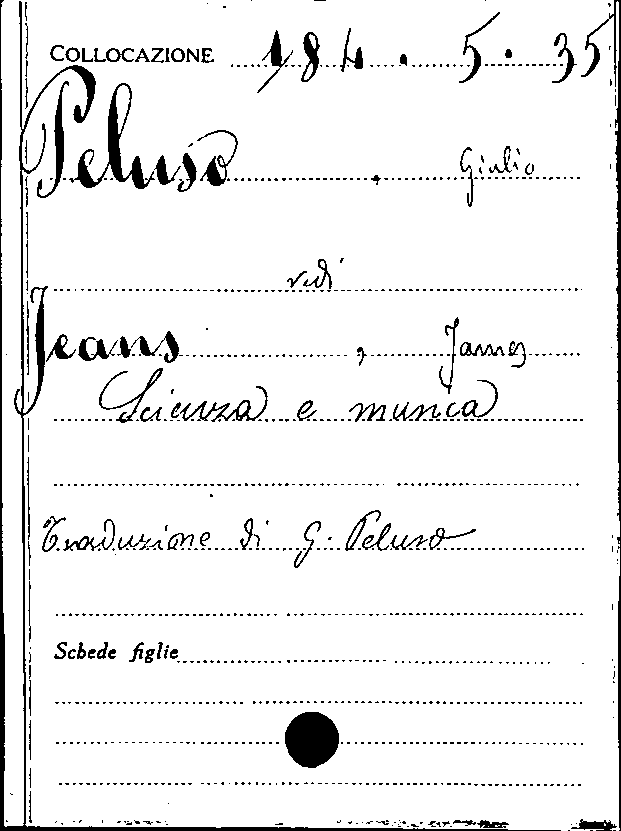 COLLOCAZIONE 184. 5. 35
Peluso, Giulio
vedi
Jeans, James
Scienza e musica
Traduzione di G. Peluso
Schede figlie